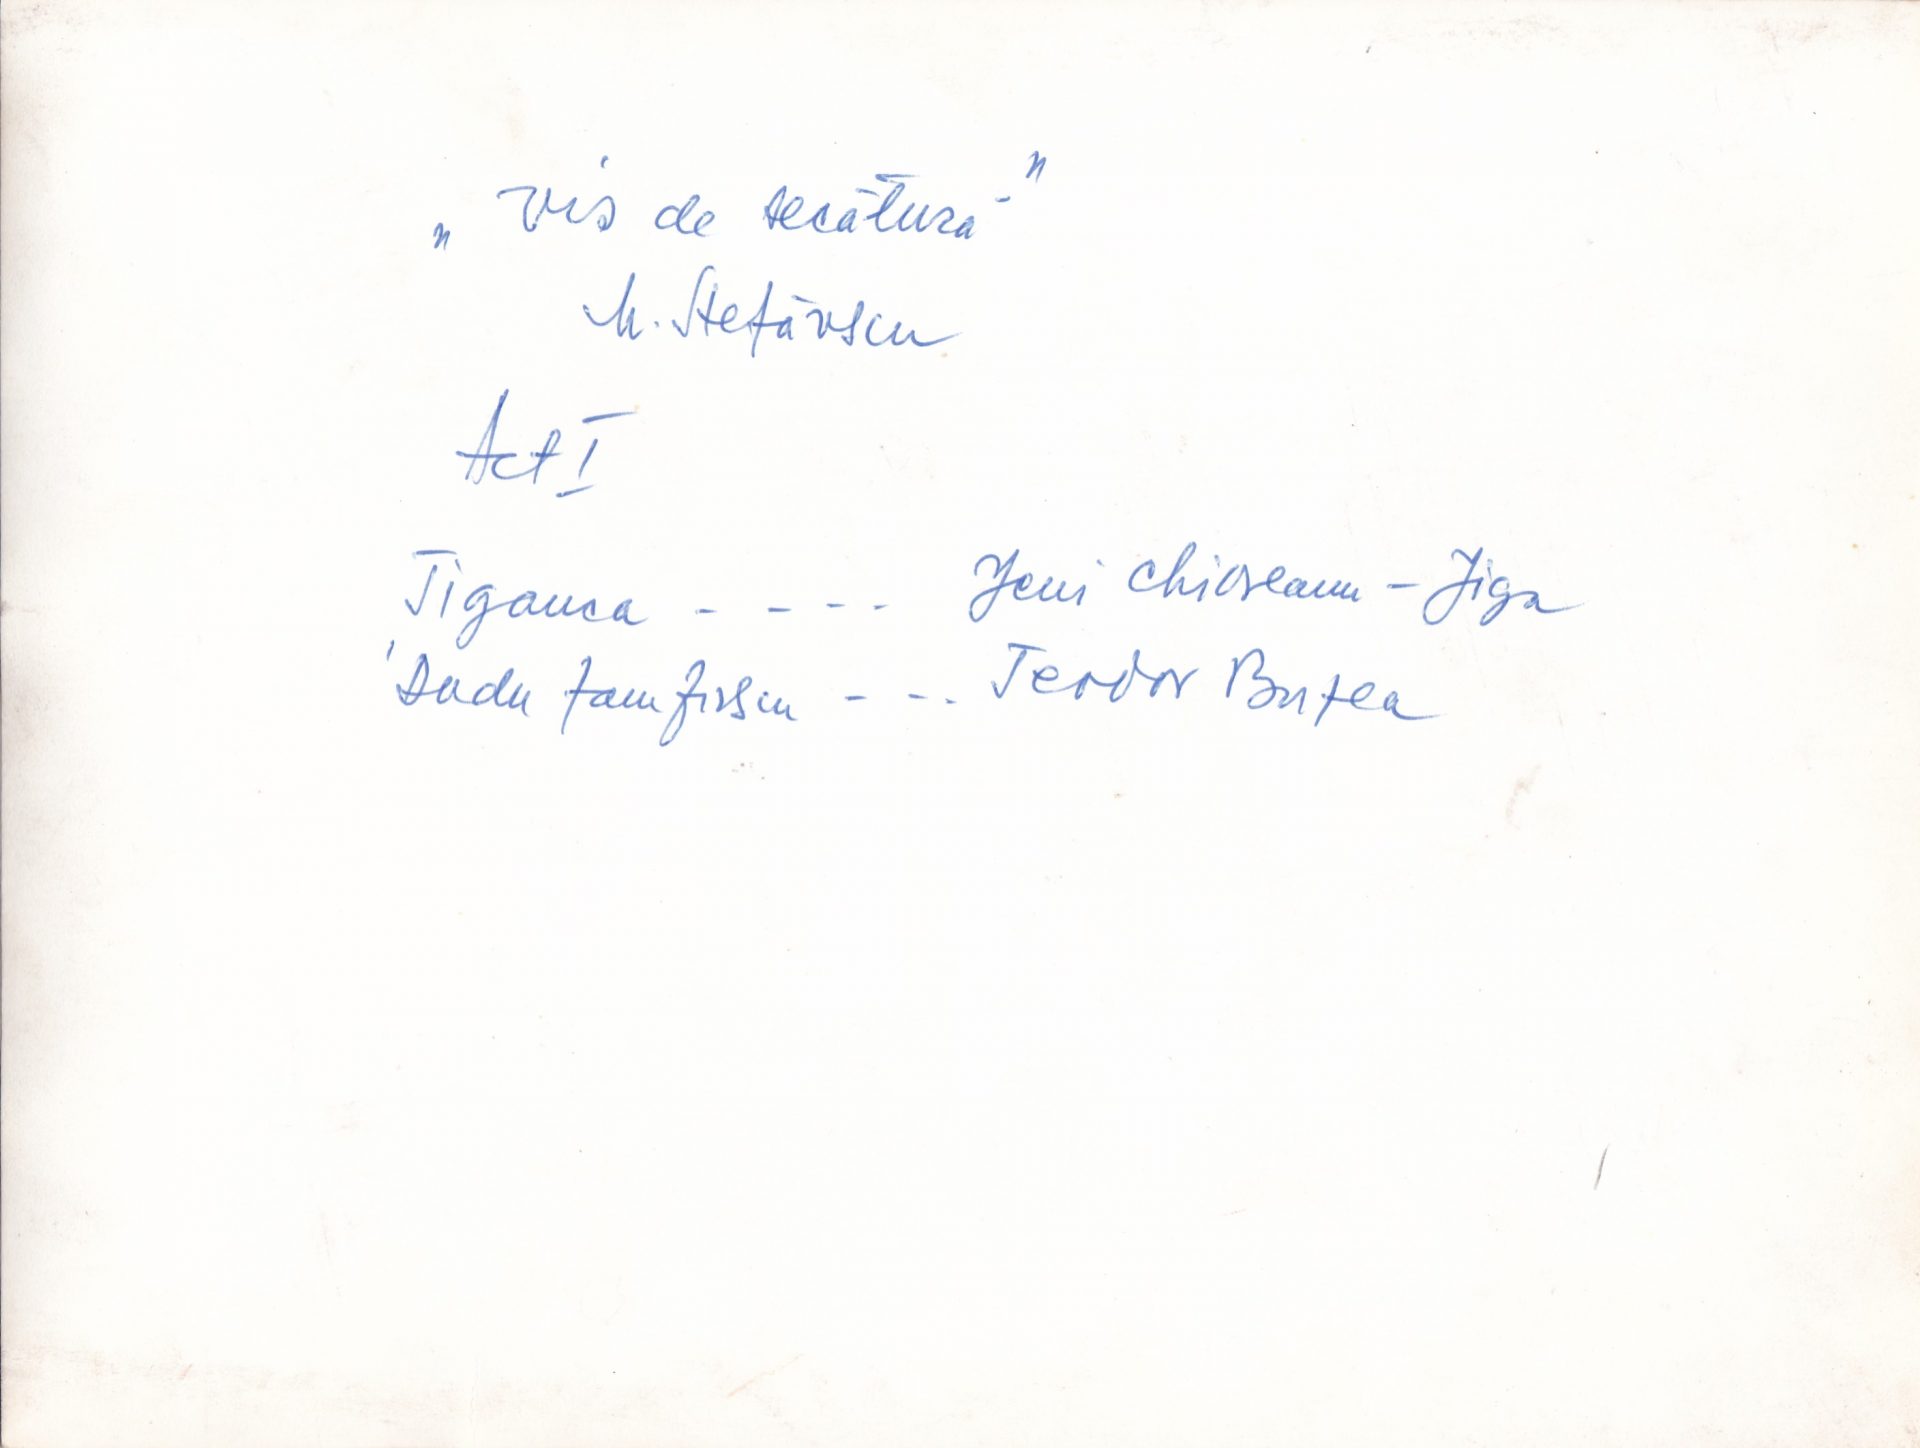 „Vis de secătură”
M. Ștefănescu
Act I
Țiganca - - - - Jeni Chioreanu - Jiga
Dudu Zamfirescu - - - Teodor Butea